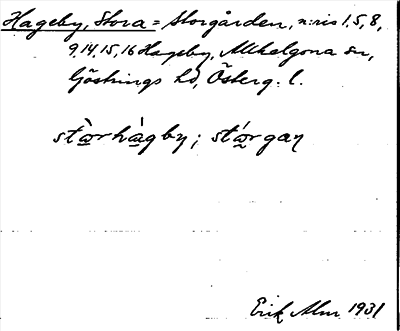 Hageby, Stora = Storgården, n:ris 1,5,8,
9,14,15,16 Hageby, Mikelgona sn,
Göstrings hd, Österg. l.
stòrhàgby; stórgaɳ
Erik Alm 1931